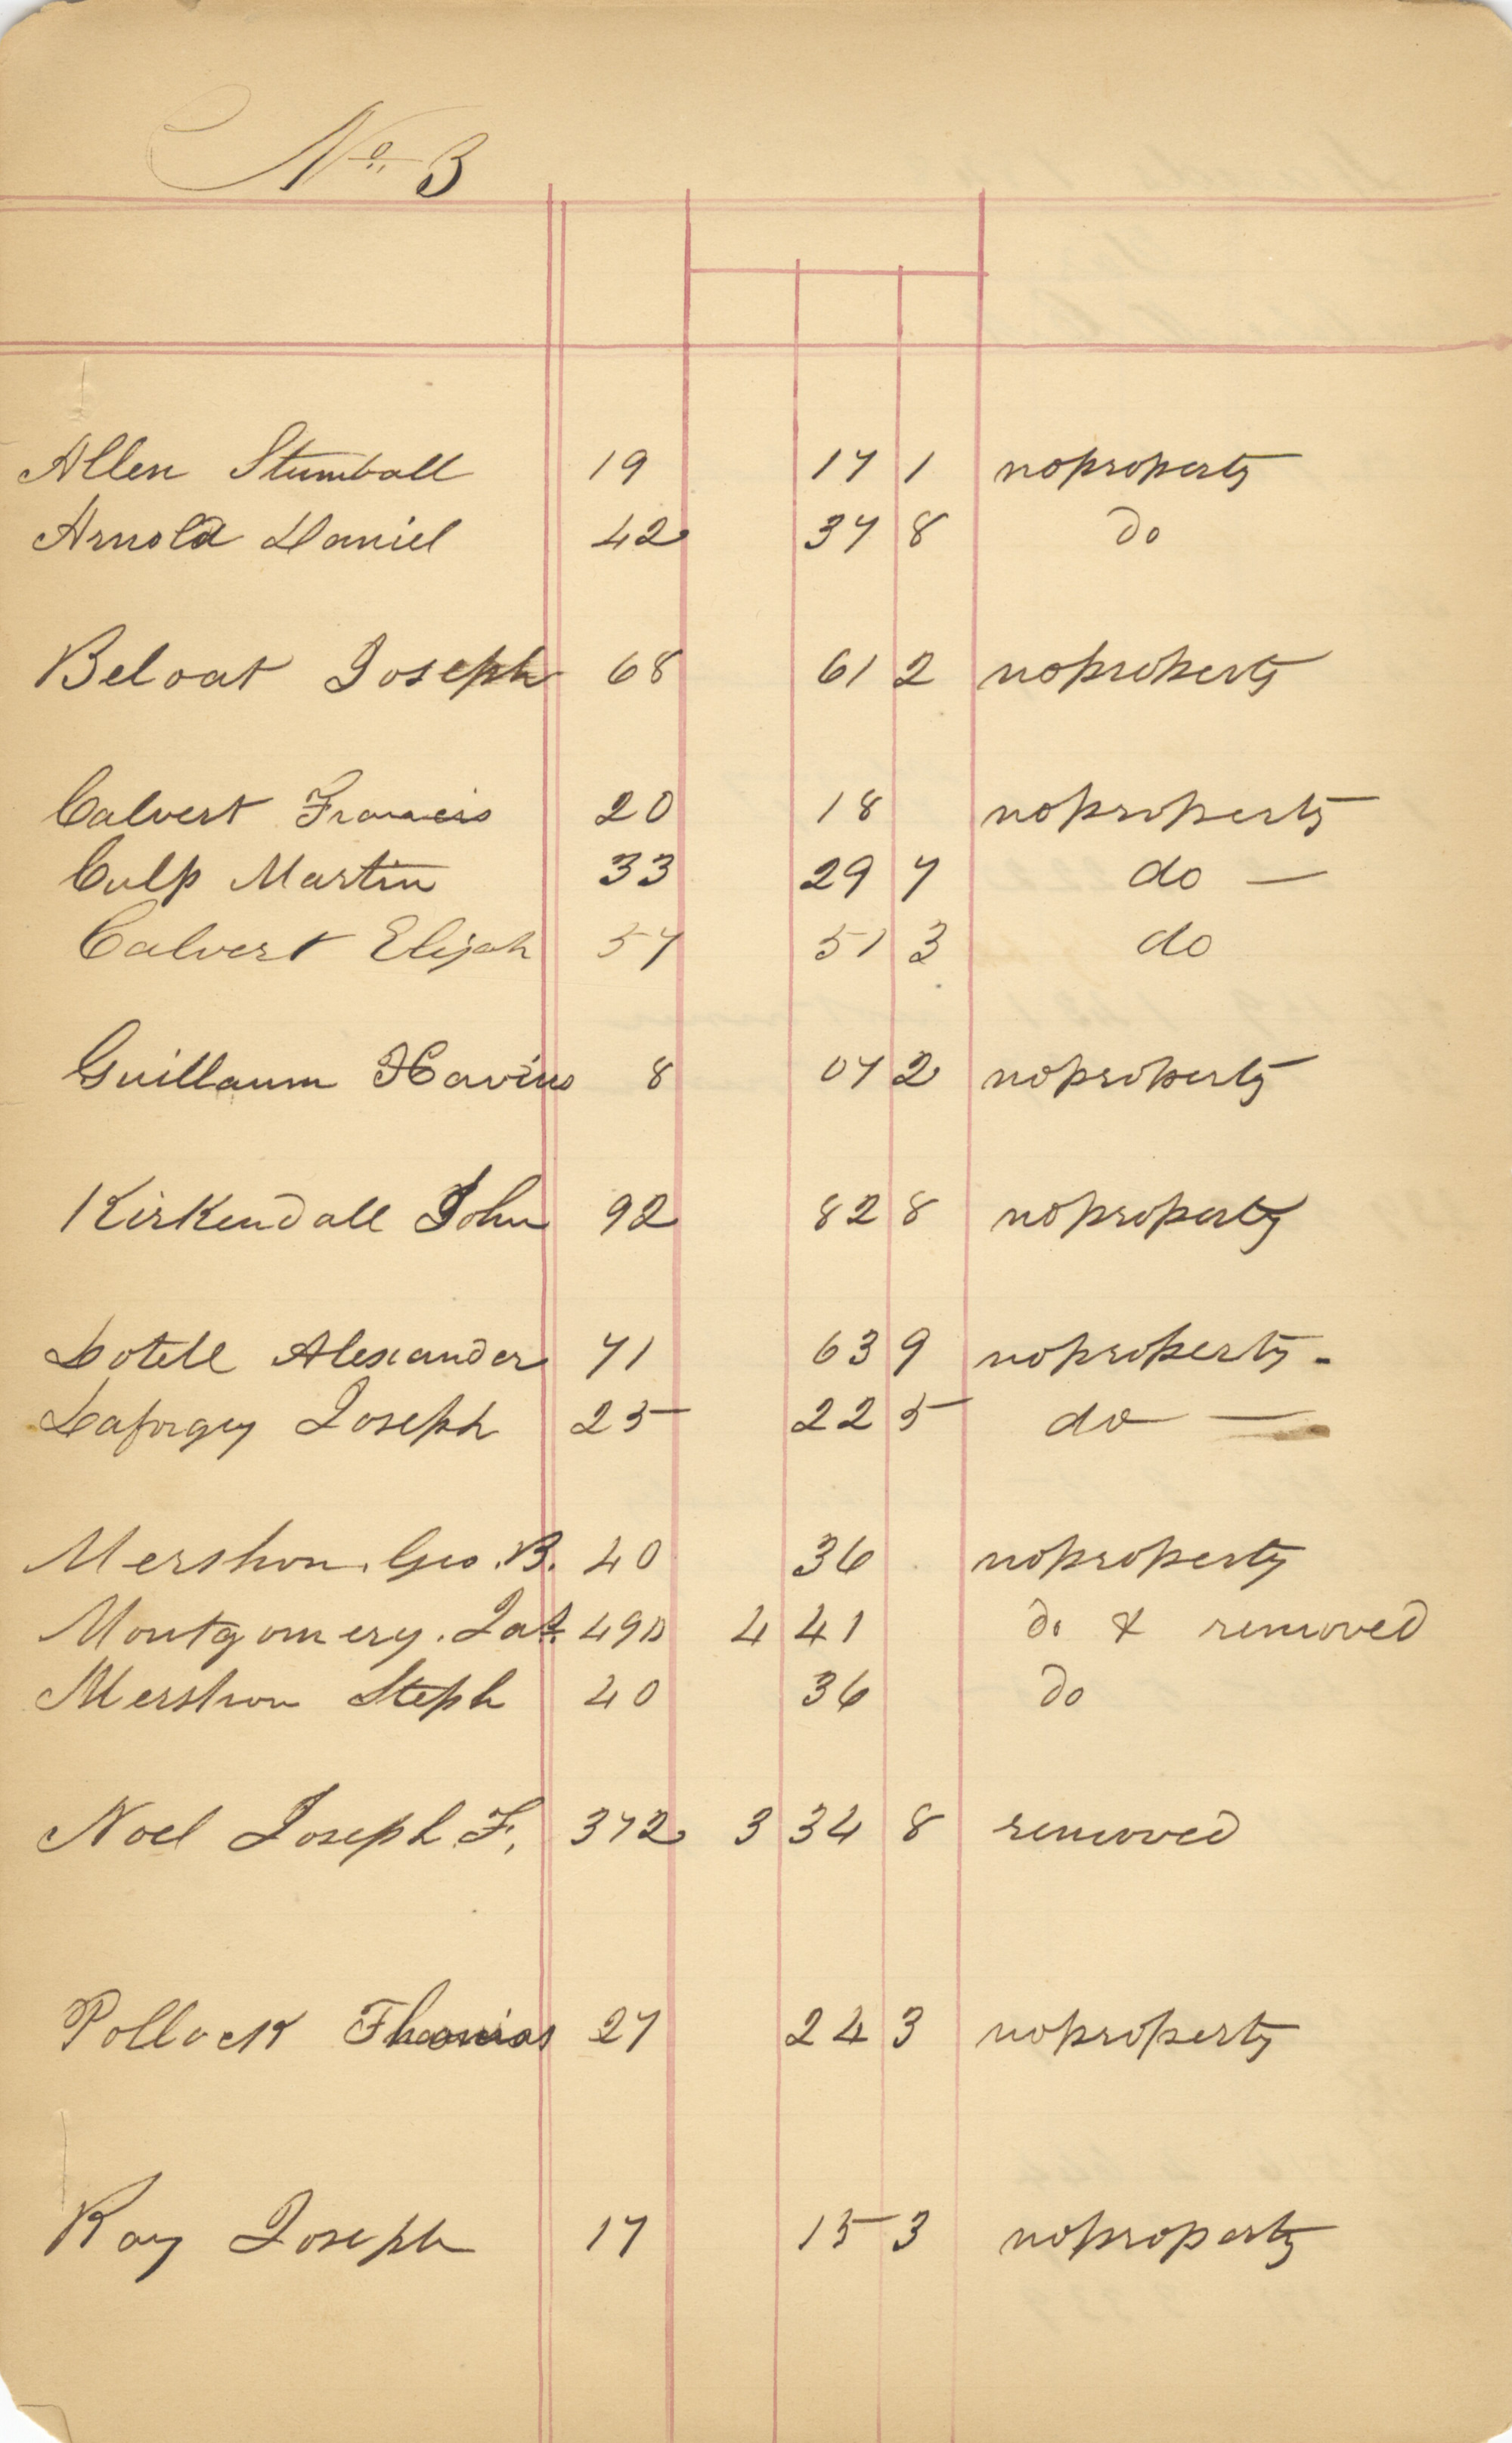 No. 3
Allen Stumball 19 17 1 noproperty
Arnold Daniel 42 37 8 do
Beloat Joseph 68 61 2 noproperty
Calvert Francis 20 18 noproperty
Culp Martin 33 29 7 do —
Calvert Elijah 57 51 3 do
Guillaum 8 07 2 noproperty
Kirkendall John 92 82 8 noproperty
Lotell Alexander 71 63 9 noproperty.
Laforgey Joseph 25 22 5 do —
Mershon. Geo. B. 40 36 noproperty
Montgomery. 490 4 41 do & removed
Mershon Steph 40 36 do
Noel Joseph F. 372 3 34 8 removed
Pollock Thomas 27 24 3 noproperty
Ray Joseph 17 15 3 noproperty